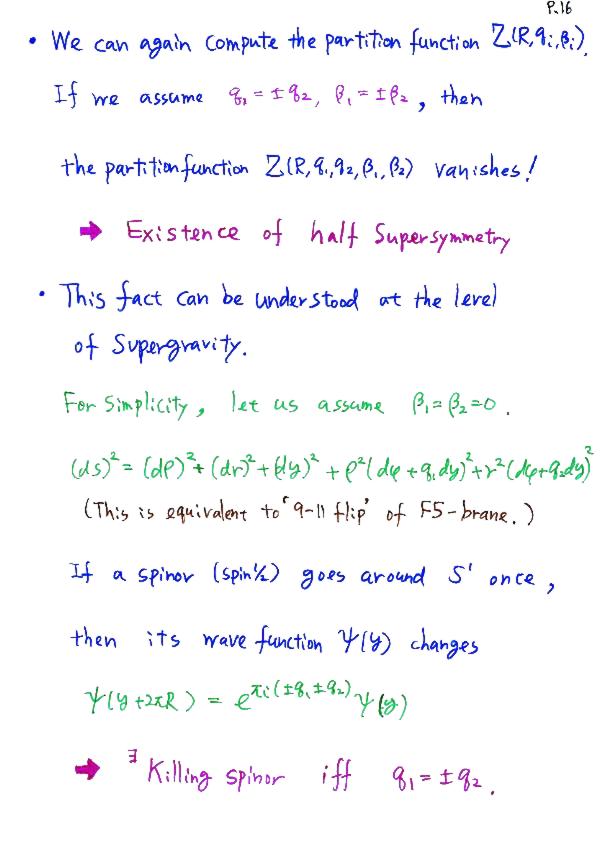 P.16
• We can again compute the partition function Z(R,qᵢ,βᵢ).
If we assume q₁ = ±q₂, β₁ = ±β₂, then
the partition function Z(R,q₁,q₂,β₁,β₂) vanishes!
➡ Existence of half Supersymmetry
• This fact can be understood at the level
of Supergravity.
For Simplicity, let us assume β₁=β₂=0.
(ds)² = (dρ)² + (dr)² + (dy)² + ρ²(dφ + q₁dy)² + r²(dφ + q₂dy)²
(This is equivalent to "9-11 flip" of F5-brane.)
If a spinor (spin 1/2) goes around S¹ once,
then its wave function Ψ(y) changes
Ψ(y+2πR) = e^{πi(±q₁±q₂)} Ψ(y)
➡ ∃ Killing spinor iff q₁ = ±q₂.